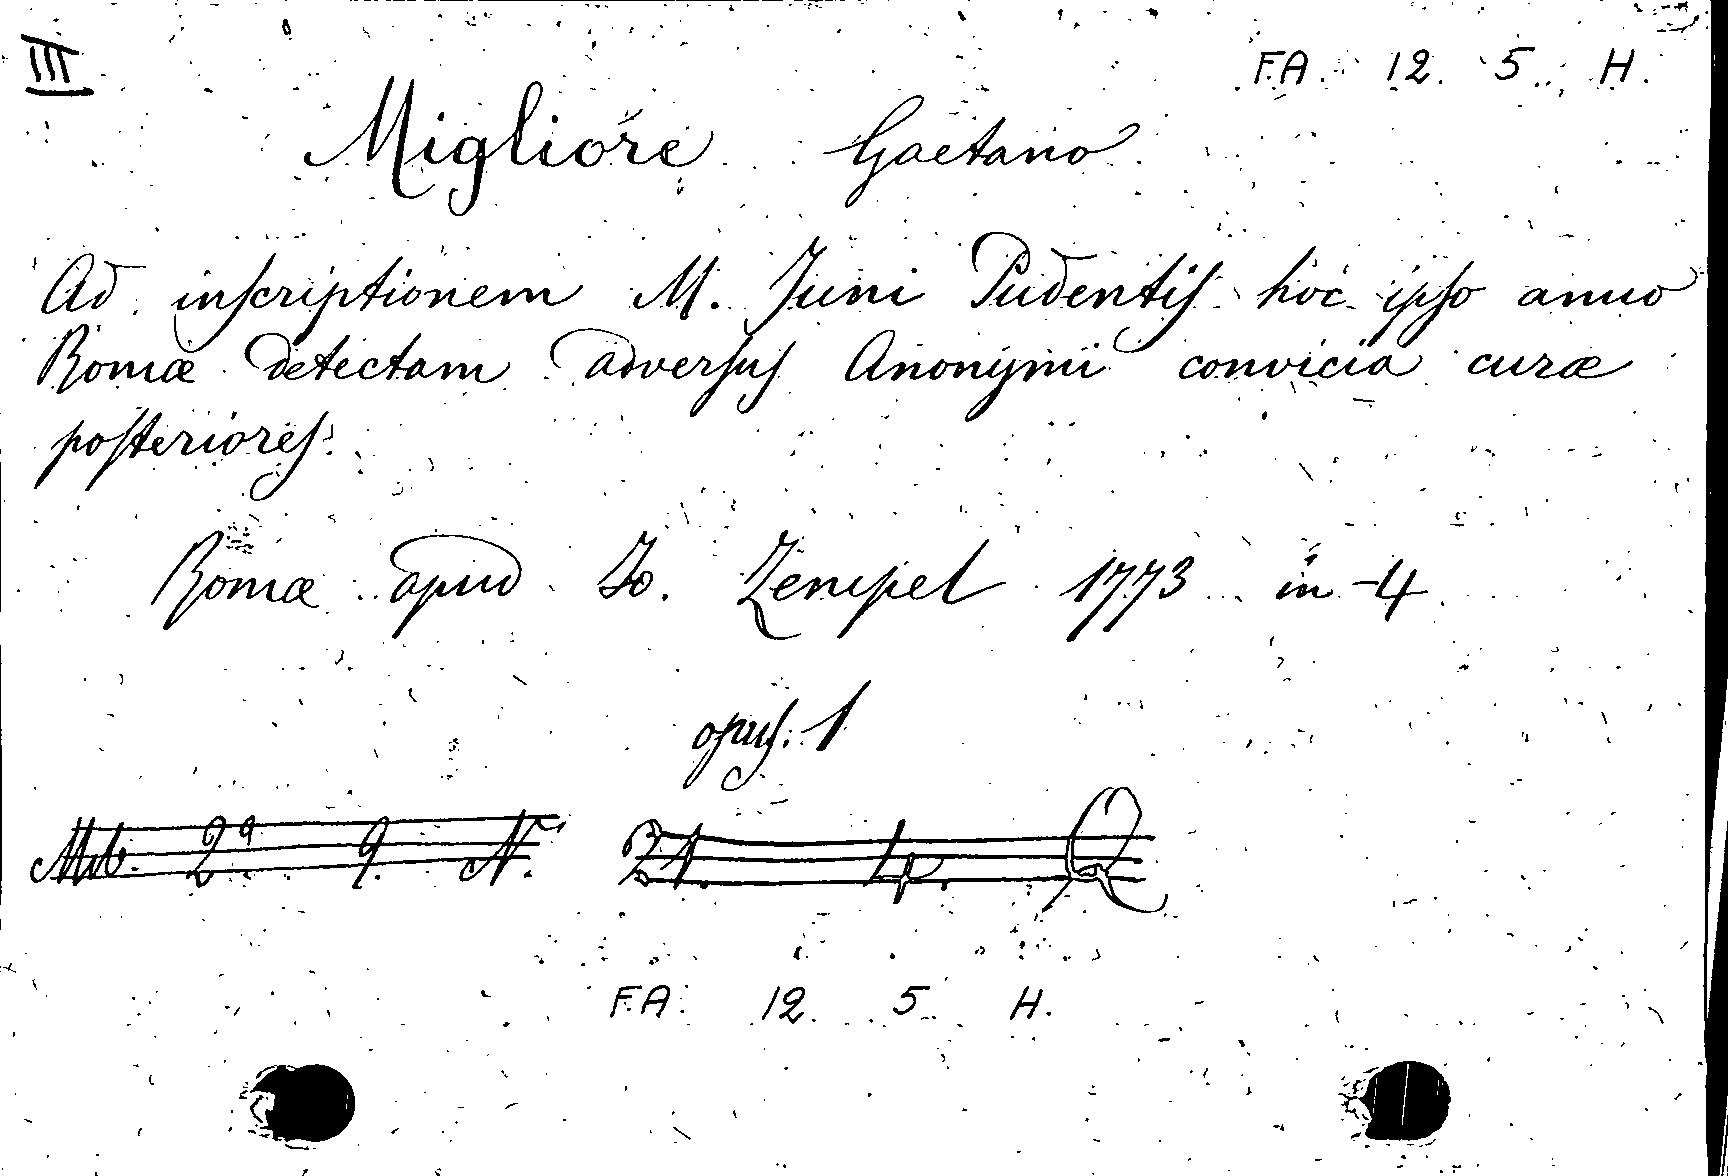 III
F.A. 12. 5. H.
Migliore Gaetano
Ad inscriptionem M. Juni Pudentis hoc ipso anno
Romæ detectam adversus Anonymi convicia curæ
posteriores.
Romæ apud Zempel 1773 in-4
opus. 1
2ª 9. N. 21. 4. Q
F.A. 12 5 H.